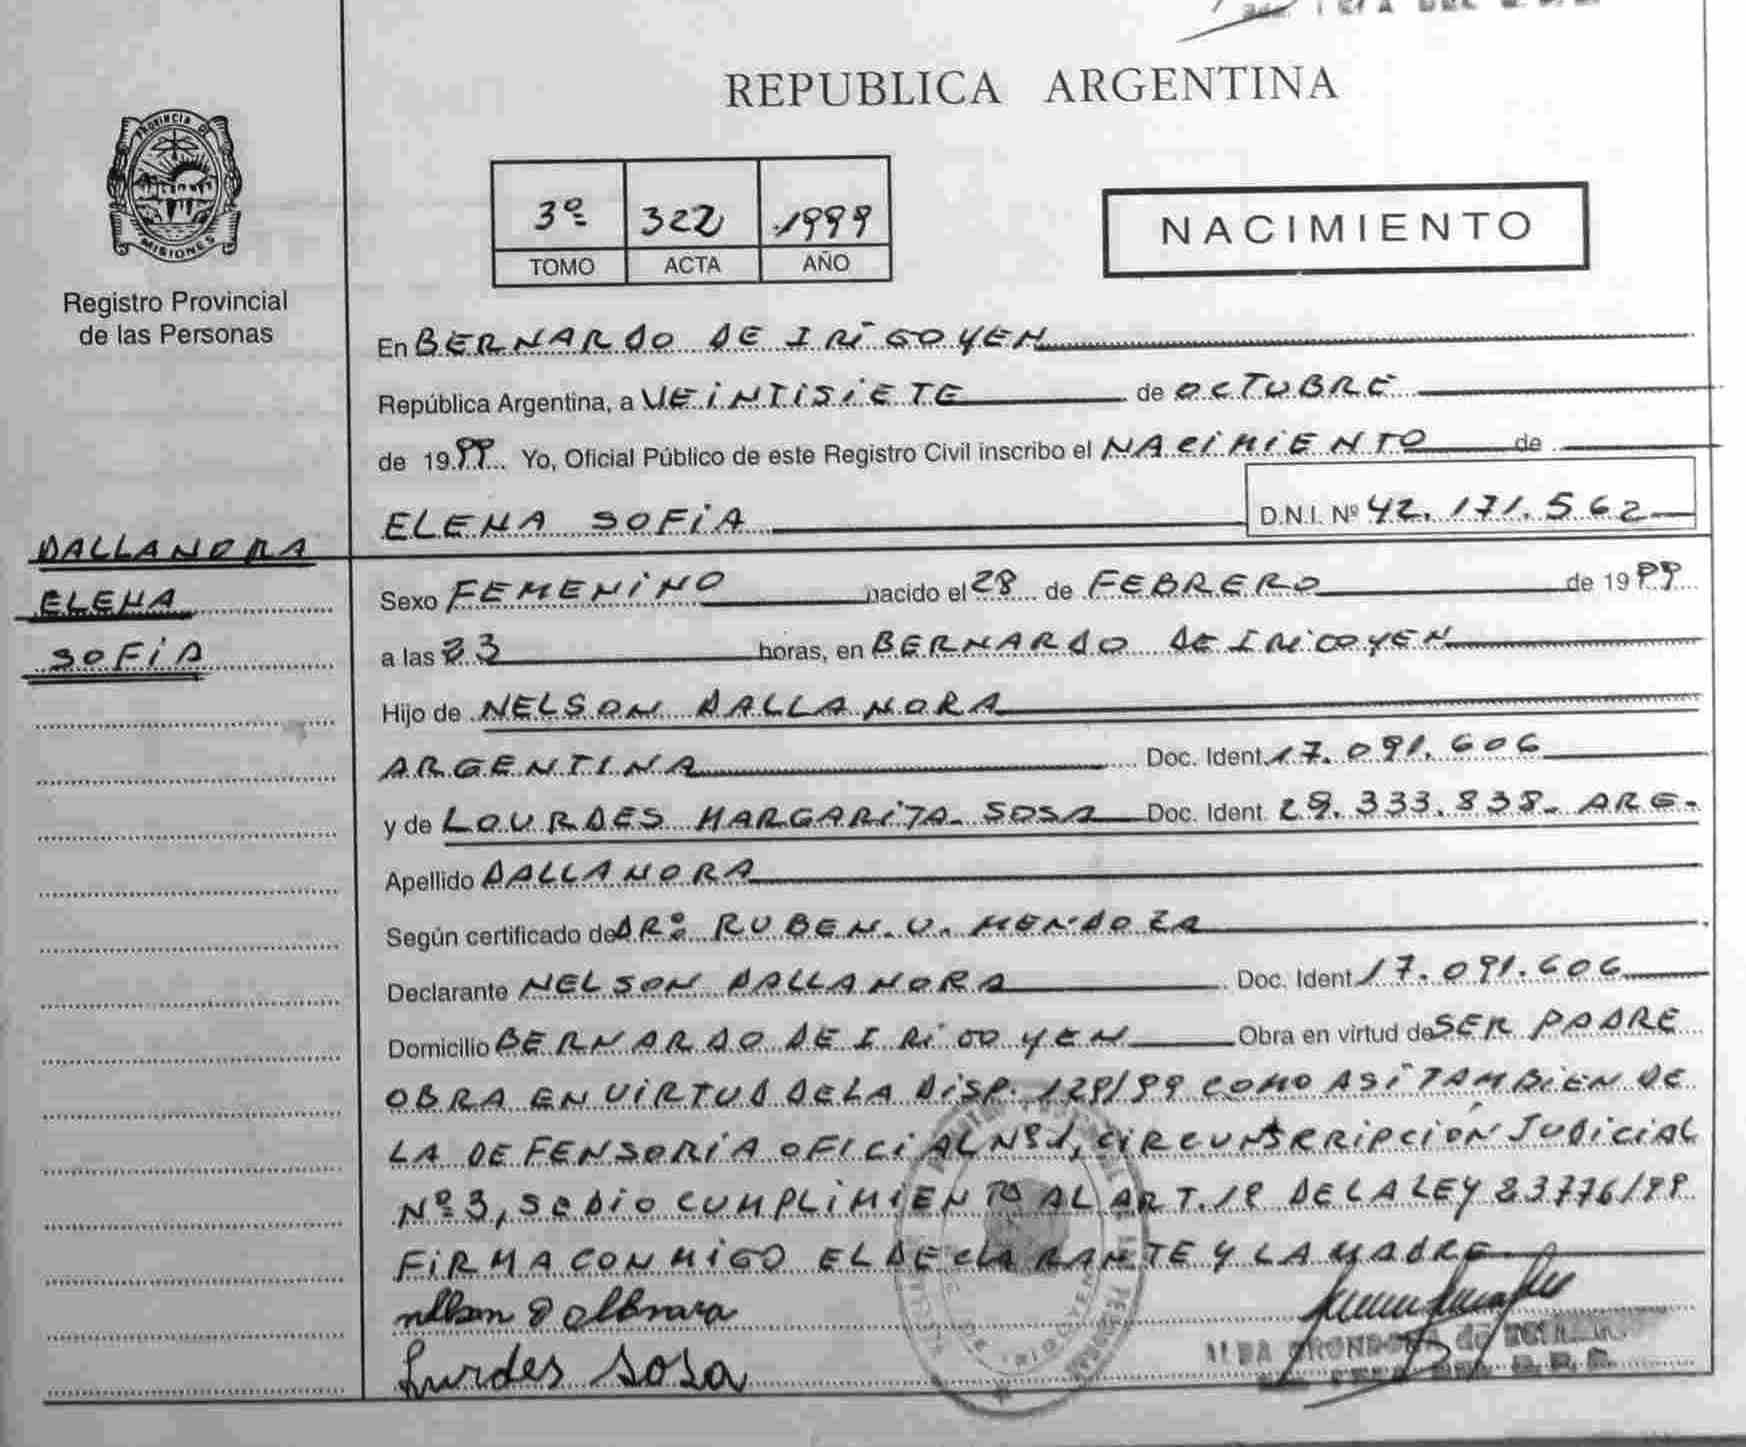 REPUBLICA ARGENTINA
PROVINCIA DE
MISIONES
Registro Provincial
de las Personas
3º 322 1999
TOMO ACTA AÑO
NACIMIENTO
En BERNARDO DE IRIGOYEN
República Argentina, a VEINTISIETE de OCTUBRE
de 1999 Yo, Oficial Público de este Registro Civil inscribo el NACIMIENTO de
ELENA SOFIA D.N.I. Nº 42.171.562
DALLANORA
ELENA
SOFIA
Sexo FEMENINO nacido el 28 de FEBRERO de 1999
a las 23 horas, en BERNARDO DE IRIGOYEN
Hijo de NELSON DALLANORA
ARGENTINA Doc. Ident. 17.091.606
y de LOURDES MARGARITA SOSA Doc. Ident. 29.333.838- ARG-
Apellido DALLANORA
Según certificado de DRº RUBEN. U. MENDOZA
Declarante NELSON DALLANORA Doc. Ident 17.091.606
Domicilio BERNARDO DE IRIGOYEN Obra en virtud de SER PADRE
OBRA EN VIRTUD DE LA DISP. 129/99 COMO ASÍ TAMBIEN DE
LA DEFENSORÍA OFICIAL Nº1, CIRCUNSRRIPCIÓN JUDICIAL
Nº3, SE DIO CUMPLIMIENTO AL ART. 19 DE LA LEY 23776/99
FIRMA CONMIGO EL DECLARANTE Y LA MADRE
Lurdes Sosa